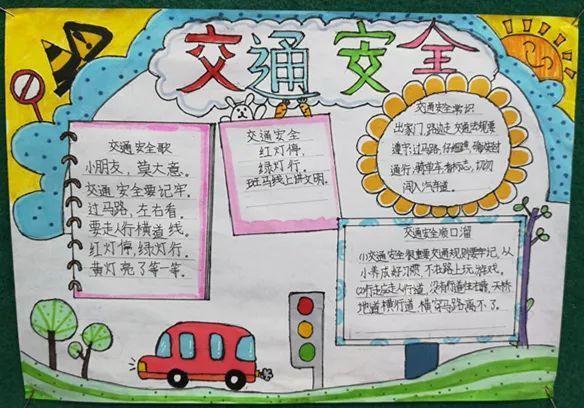 交通安全
交通安全歌
小朋友，莫大意。
交通安全要记牢。
过马路，左右看。
要走人行横道线。
红灯停，绿灯行。
黄灯亮了等一等。
交通安全
红灯停，
绿灯行。
斑马线上讲文明。
交通安全常识
出家门，路边走，交通法规要
遵守；过马路，仔细瞧，确保安
通行；骑单车，看标志，切勿
闯入汽车道。
交通安全顺口溜
(1)交通安全很重要，交通规则要牢记，从
小养成好习惯，不在路上玩游戏。
(2)行走应走人行道，没有行道往右靠，天桥
地道横行道，横穿马路离不了。